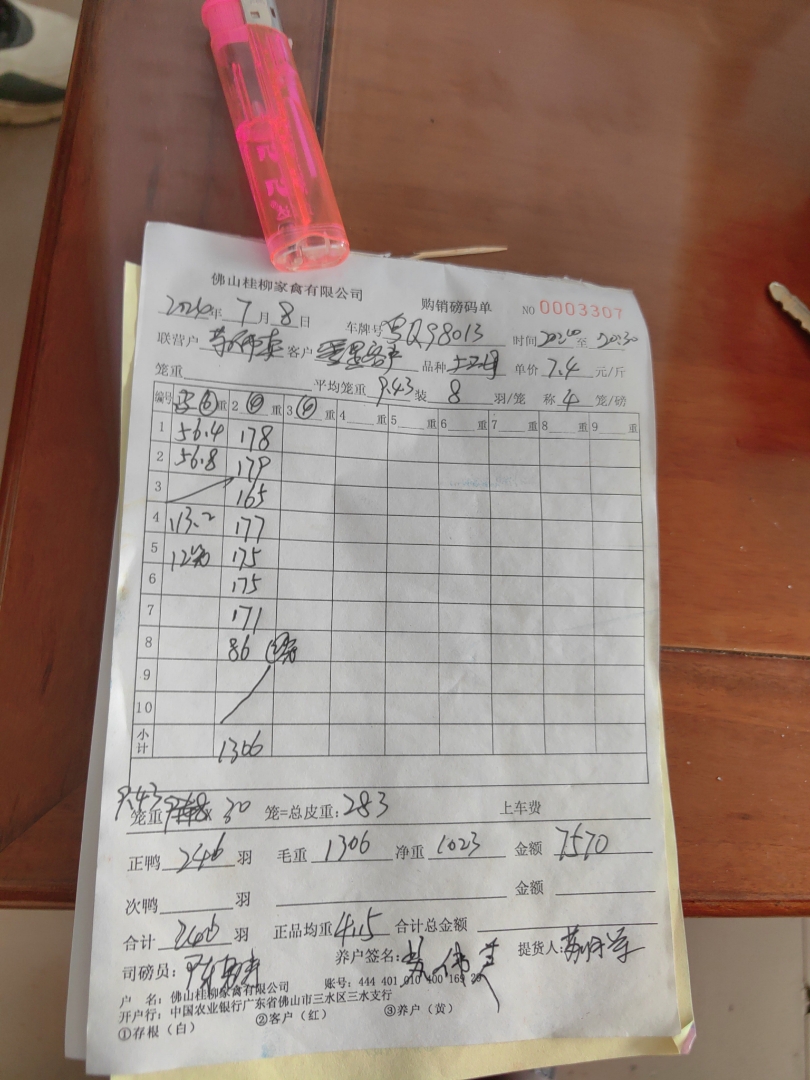 佛山桂柳家禽有限公司 购销磅码单 NO 0003307
年 7 月 8 日 车牌号 粤Q98013 时间 至 2030
联营户 客户 品种 单价 7.4 元/斤
笼重 平均笼重 9.43 装 8 羽/笼 称 4 笼/磅
编号 ⑥ 重 2 ④ 重 3 ④ 重 4 重 5 重 6 重 7 重 8 重 9 重
1 56.4 178
2 56.8 179
3 165
4 113.2 177
5 12 175
6 175
7 171
8 86
9
10
小计 1306
9.43
笼重 × 30 笼=总皮重: 283 上车费
正鸭 246 羽 毛重 1306 净重 1023 金额 7570
次鸭 羽 金额
合计 246 羽 正品均重 4.15 合计总金额
司磅员: 养户签名: 提货人:
户 名: 佛山桂柳家禽有限公司 账号: 444 401 010 400 169 29
开户行: 中国农业银行广东省佛山市三水区三水支行
①存根（白） ②客户（红） ③养户（黄）